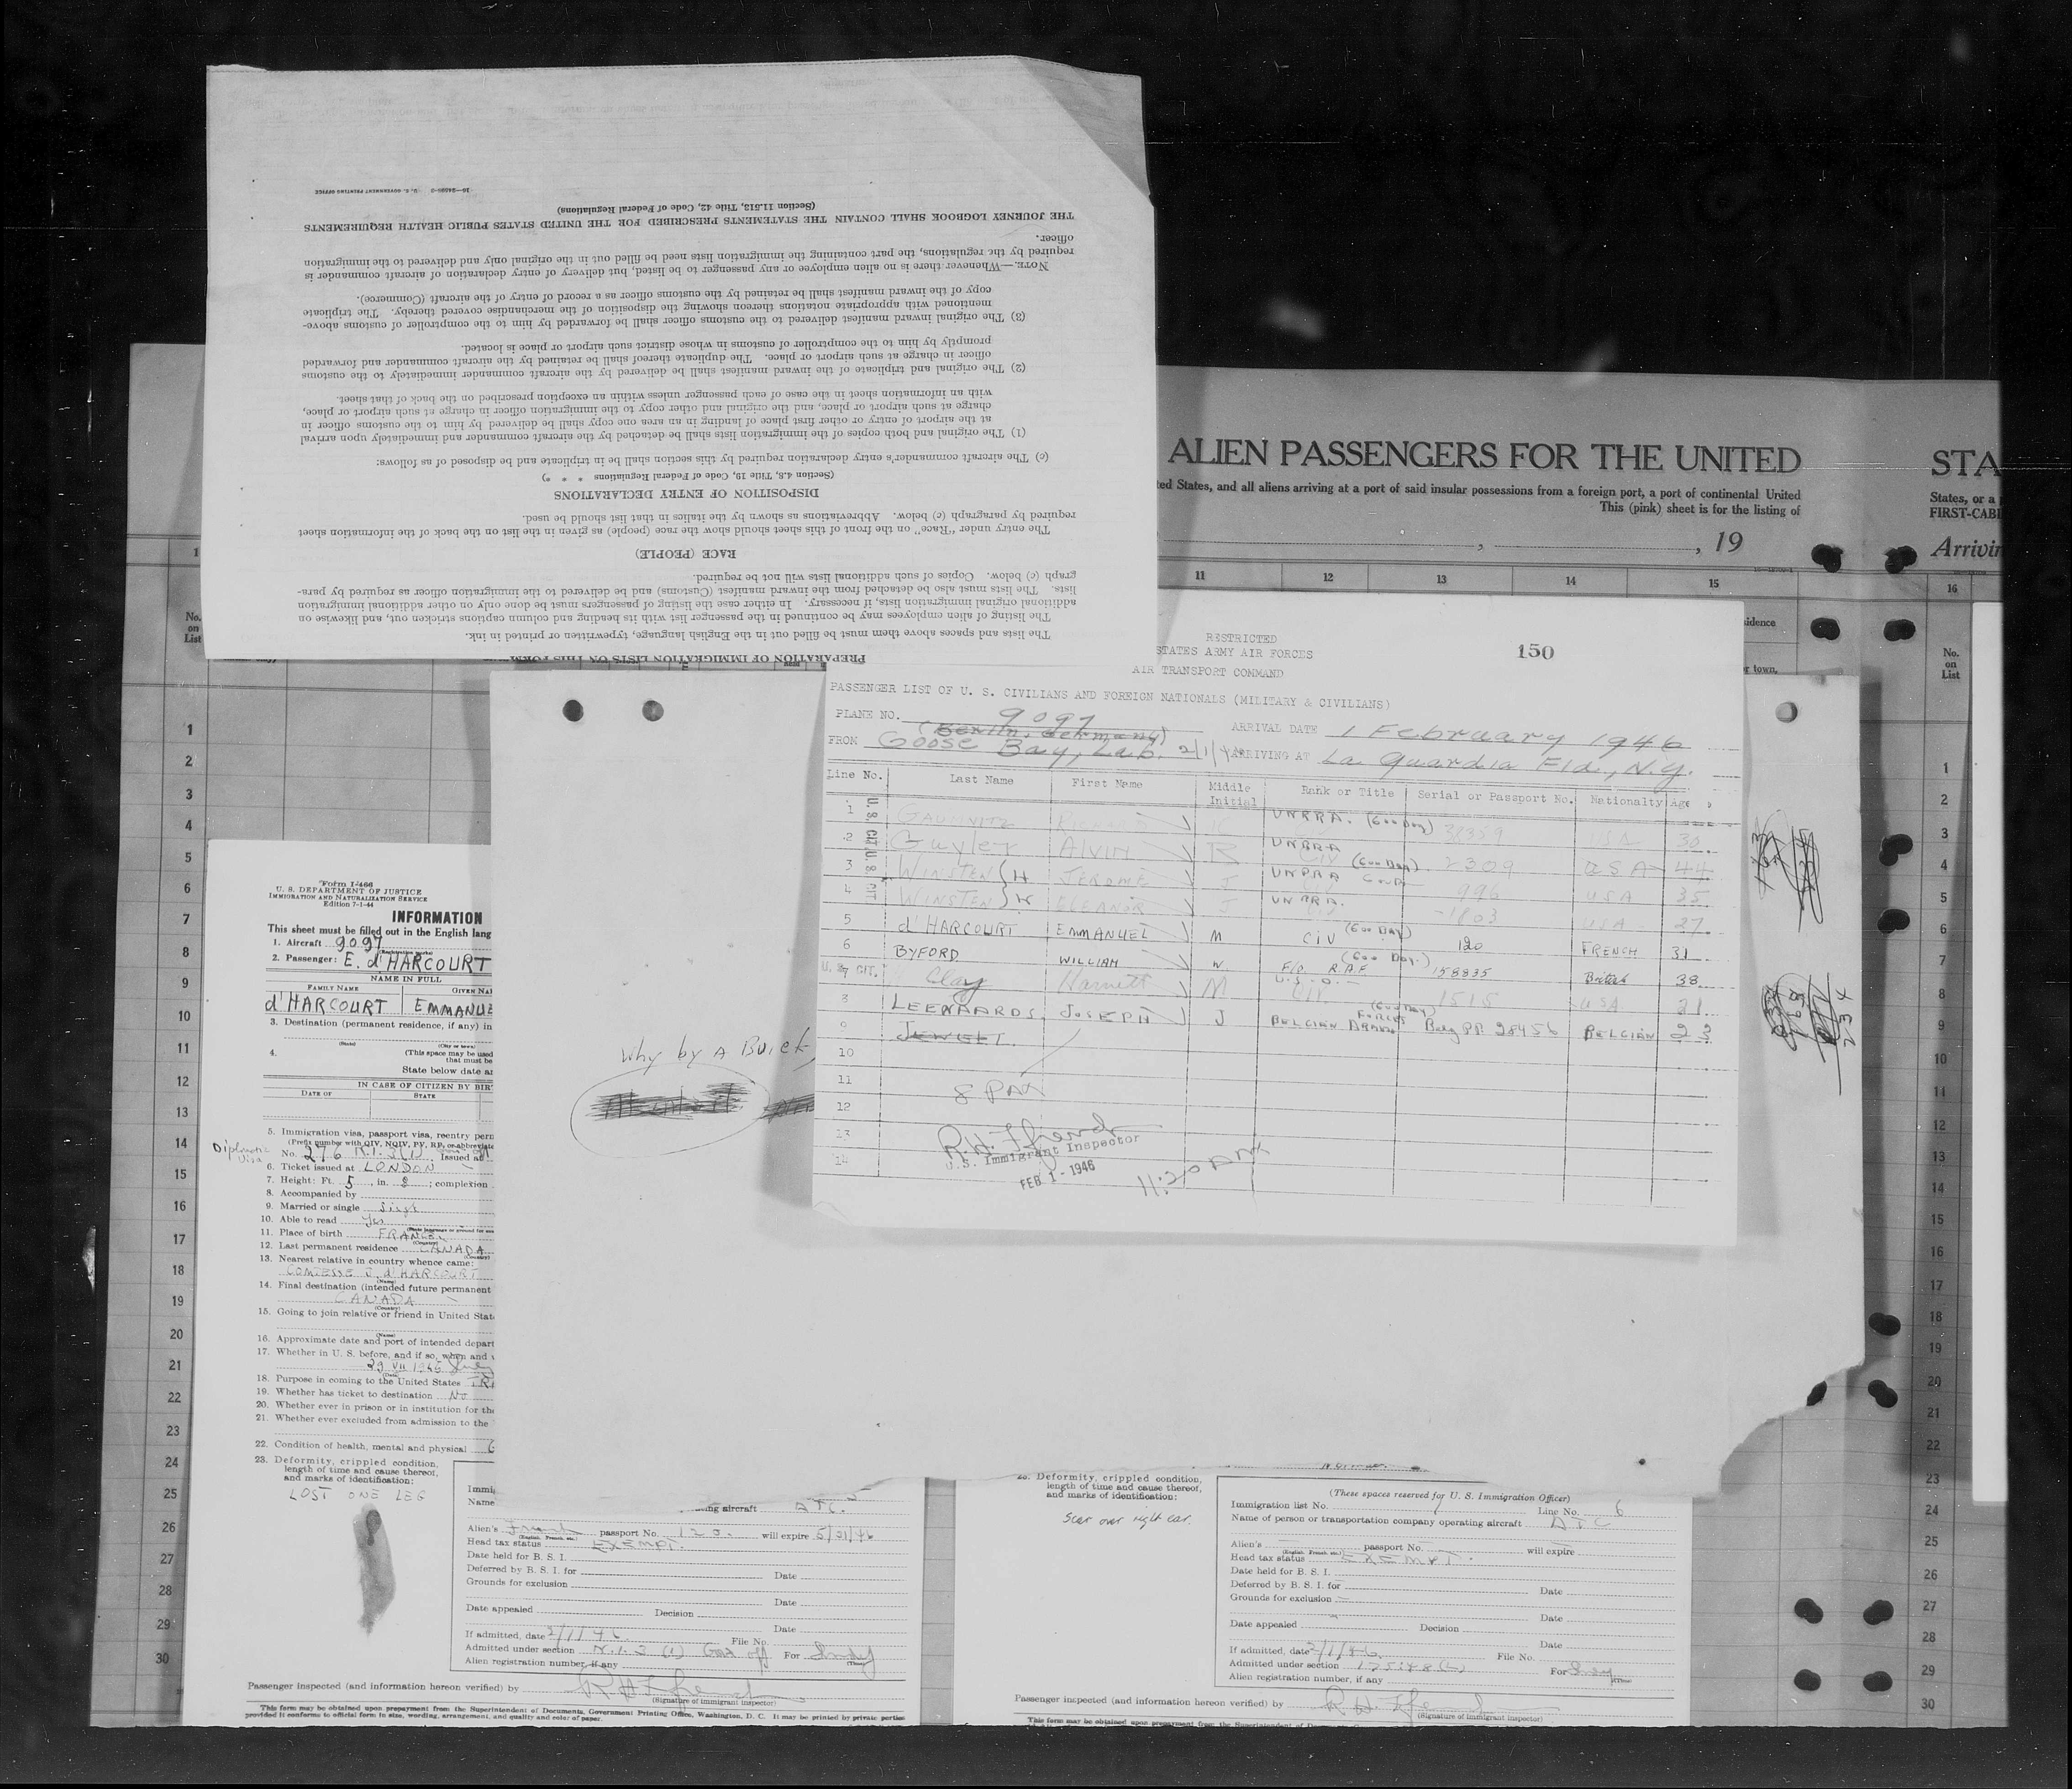 16—24680-2 U. S. GOVERNMENT PRINTING OFFICE
(Section 11.513, Title 42, Code of Federal Regulations)
THE JOURNEY LOGBOOK SHALL CONTAIN THE STATEMENTS PRESCRIBED FOR THE UNITED STATES PUBLIC HEALTH REQUIREMENTS
officer.
required by the regulations, the part containing the immigration lists need be filled out in the original only and delivered to the immigration
NOTE.—Whenever there is no alien employee or any passenger to be listed, but delivery of entry declaration of aircraft commander is
copy of the inward manifest shall be retained by the customs officer as a record of entry of the aircraft (Commerce).
mentioned with appropriate notations thereon showing the disposition of the merchandise covered thereby. The triplicate
(3) The original inward manifest delivered to the customs officer shall be forwarded by him to the comptroller of customs above-
promptly by him to the comptroller of customs in whose district such airport or place is located.
officer in charge at such airport or place. The duplicate thereof shall be retained by the aircraft commander and forwarded
(2) The original and triplicate of the inward manifest shall be delivered by the aircraft commander immediately to the customs
with an information sheet in the case of each passenger unless within an exception prescribed on the back of that sheet.
charge at such airport or place, and the original and other copy to the immigration officer in charge at such airport or place,
at the airport of entry or other first place of landing in an area one copy shall be delivered by him to the customs officer in
(1) The original and both copies of the immigration lists shall be detached by the aircraft commander and immediately upon arrival
(c) The aircraft commander's entry declaration required by this section shall be in triplicate and be disposed of as follows:
(Section 4.8, Title 19, Code of Federal Regulations * * *)
DISPOSITION OF ENTRY DECLARATIONS
required by paragraph (c) below. Abbreviations as shown by the italics in that list should be used.
The entry under "Race" on the front of this sheet should show the race (people) as given in the list on the back of the information sheet
RACE (PEOPLE)
graph (c) below. Copies of such additional lists will not be required.
lists. The lists must also be detached from the inward manifest (Customs) and be delivered to the immigration officer as required by para-
additional original immigration lists, if necessary. In either case the listing of passengers must be done only on other additional immigration
The listing of alien employees may be continued in the passenger list with its heading and column captions stricken out, and likewise on
The lists and spaces above them must be filled out in the English language, typewritten or printed in ink.
PREPARATION OF IMMIGRATION LISTS ON THIS FORM
ALIEN PASSENGERS FOR THE UNITED
ted States, and all aliens arriving at a port of said insular possessions from a foreign port, a port of continental United
This (pink) sheet is for the listing of
, , 19
11 12 13 14 15
STA
States, or a
FIRST-CABI
Arrivin
16
No. on List
RESTRICTED
STATES ARMY AIR FORCES
150
AIR TRANSPORT COMMAND
PASSENGER LIST OF U. S. CIVILIANS AND FOREIGN NATIONALS (MILITARY & CIVILIANS)
PLANE NO. 9097 ARRIVAL DATE 1 February 1946
(Berlin, Germany)
FROM Goose Bay, Lab. ARRIVING AT La Guardia Fld., N.Y.
Line No. Last Name First Name Middle Initial Rank or Title Serial or Passport No. Nationalty Age
1 GAUMNITZ UNRRA. 32359 USA 30
2 Guyler Alvin R UNRRA 2309 USA 44
3 WINSTEN JEROME J UNRRA 996 USA 35
4 WINSTEN ELEANOR J UNRRA. 1803 USA 27
5 d'HARCOURT EMMANUEL M CIV 120 FRENCH 31
6 BYFORD WILLIAM W. F/O. R.A.F 158835 British 38
7 Clay M 1515 USA 31
8 LEENAARDS JOSEPH J BELGIAN ARMED FORCES 28456 BELGIAN 23
9 JEWELL
10
11
12
13
14
8 PAX
R.H. Ffrench
U.S. Immigrant Inspector
FEB 1 - 1946
11:20 AM
Why by A Buick
Form I-466
U. S. DEPARTMENT OF JUSTICE
IMMIGRATION AND NATURALIZATION SERVICE
Edition 7-1-44
INFORMATION
This sheet must be filled out in the English lang
1. Aircraft 9097
2. Passenger: E. d'HARCOURT
NAME IN FULL
FAMILY NAME GIVEN NA
d'HARCOURT EMMANUE
3. Destination (permanent residence, if any) in
(City or town)
4. (This space may be used
that must be
State below date at
IN CASE OF CITIZEN BY BIR
DATE OF STATE
5. Immigration visa, passport visa, reentry perm
(Prefix number with QIV, NQIV, PV, RP, or abbreviate
Diplomatic Visa
No. 276 Issued at
6. Ticket issued at LONDON
7. Height: Ft. 5, in. 8; complexion
8. Accompanied by
9. Married or single Single
10. Able to read Yes
11. Place of birth FRANCE
12. Last permanent residence CANADA
13. Nearest relative in country whence came:
COMTESSE J. d'HARCOURT
14. Final destination (intended future permanent
CANADA
15. Going to join relative or friend in United Stat
16. Approximate date and port of intended depart
17. Whether in U. S. before, and if so, when and
29 VII 1945
18. Purpose in coming to the United States TR
19. Whether has ticket to destination No
20. Whether ever in prison or in institution for the
21. Whether ever excluded from admission to the
22. Condition of health, mental and physical G
23. Deformity, crippled condition,
length of time and cause thereof,
and marks of identification:
LOST ONE LEG
Immig
Name
ing aircraft ATC.
Alien's French passport No. 120. will expire 5/31/46
Head tax status EXEMPT.
Date held for B. S. I.
Deferred by B. S. I. for Date
Grounds for exclusion
Date
Date appealed Decision
Date
If admitted, date 2/1/46 File No.
Admitted under section N.I. 3 (1) Gov. off For
Alien registration number, if any
Passenger inspected (and information hereon verified) by R H Ffrench
(Signature of immigrant inspector)
This form may be obtained upon prepayment from the Superintendent of Documents, Government Printing Office, Washington, D. C. It may be printed by private parties
provided it conforms to official form in size, wording, arrangement, and quality and color of paper.
23. Deformity, crippled condition,
length of time and cause thereof,
and marks of identification:
Scar over right ear.
(These spaces reserved for U. S. Immigration Officer)
Immigration list No. Line No. 6
Name of person or transportation company operating aircraft ATC
Alien's passport No. will expire
Head tax status EXEMPT.
Date held for B. S. I.
Deferred by B. S. I. for Date
Grounds for exclusion
Date
Date appealed Decision
Date
If admitted, date 2/1/46 File No.
Admitted under section For
Alien registration number, if any
Passenger inspected (and information hereon verified) by R. H. Ffrench
(Signature of immigrant inspector)
This form may be obtained upon prepayment from the Superintendent of D